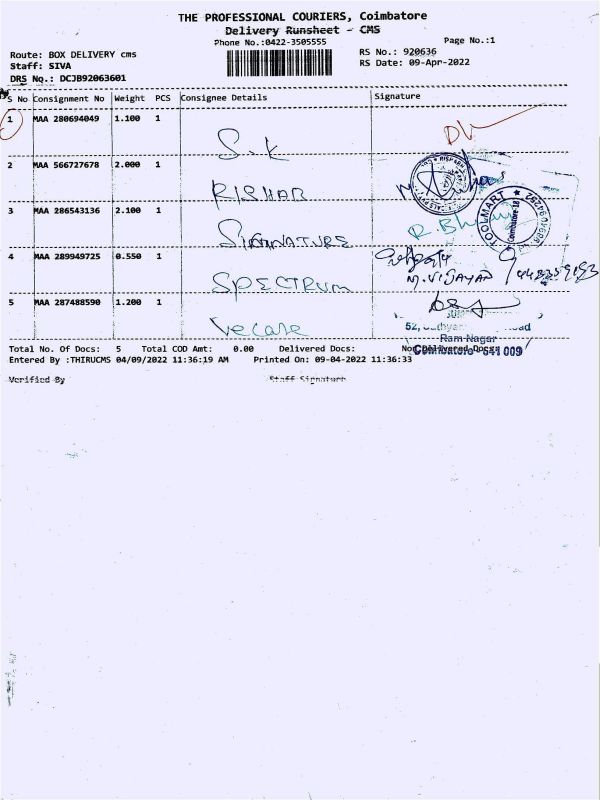 THE PROFESSIONAL COURIERS, Coimbatore
Delivery Runsheet - CMS
Phone No.:0422-3505555 Page No.:1
Route: BOX DELIVERY cms RS No.: 920636
Staff: SIVA RS Date: 09-Apr-2022
DRS No.: DCJB92063601
S No Consignment No Weight PCS Consignee Details Signature
1 MAA 280694049 1.100 1
S.K
2 MAA 566727678 2.000 1
RISHAB
3 MAA 286543136 2.100 1
TOOLMART
Coimbatore-18
R.Bh
SIGNNATURE
4 MAA 289949725 0.550 1
SPECTRUM M.VIJAYAN
5 MAA 287488590 1.200 1
Vecare
52,
Ram Nagar
Coimbatore - 641 009
Total No. Of Docs: 5 Total COD Amt: 0.00 Delivered Docs: Not Delivered Docs:
Entered By :THIRUCMS 04/09/2022 11:36:19 AM Printed On: 09-04-2022 11:36:33
Verified By Staff Signature